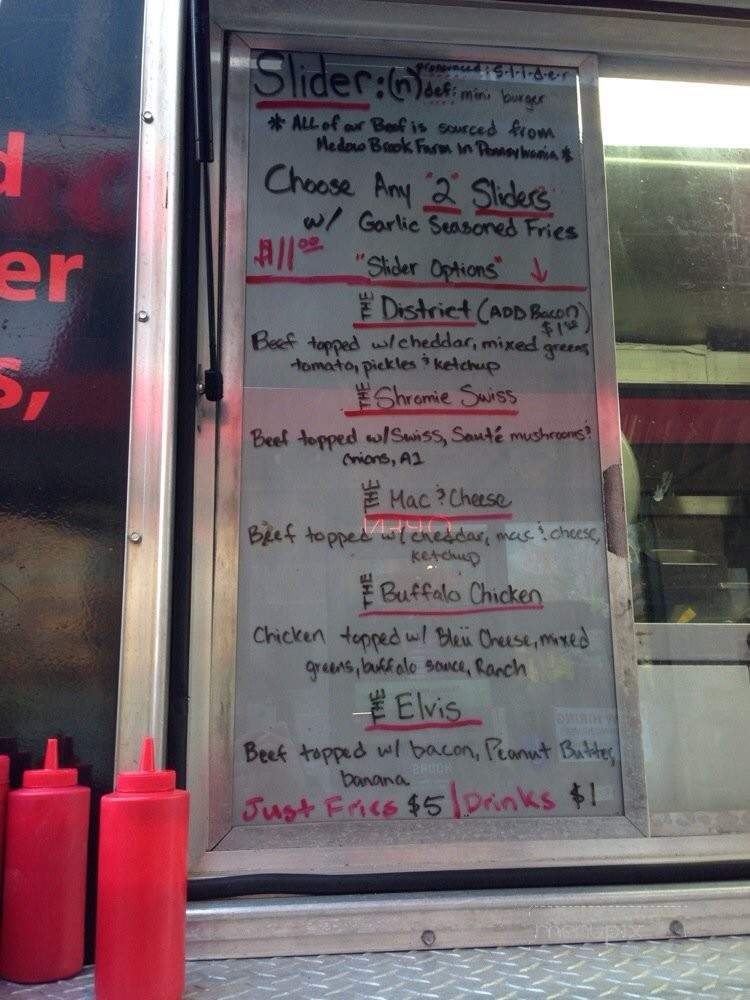 d
er
s,
Slider:(n) pronounced: S-l-i-d-e-r
def: mini burger
* ALL of our Beef is sourced from
Medow Brook Farm in Pennsylvania *
Choose Any "2" Sliders
w/ Garlic Seasoned Fries
$11.00
"Slider Options" ↓
THE District (ADD Bacon)
$1
Beef topped w/cheddar, mixed greens,
tomato, pickles & ketchup
THE Shromie Swiss
Beef topped w/Swiss, Sauté mushrooms &
onions, A1
THE Mac & Cheese
OPEN
Beef topped w/ cheddar, mac & cheese,
ketchup
THE Buffalo Chicken
Chicken topped w/ Bleü Cheese, mixed
greens, buffalo sauce, Ranch
THE Elvis
Beef topped w/ bacon, Peanut Butter,
banana
Just Fries $5 | Drinks $1
menupix